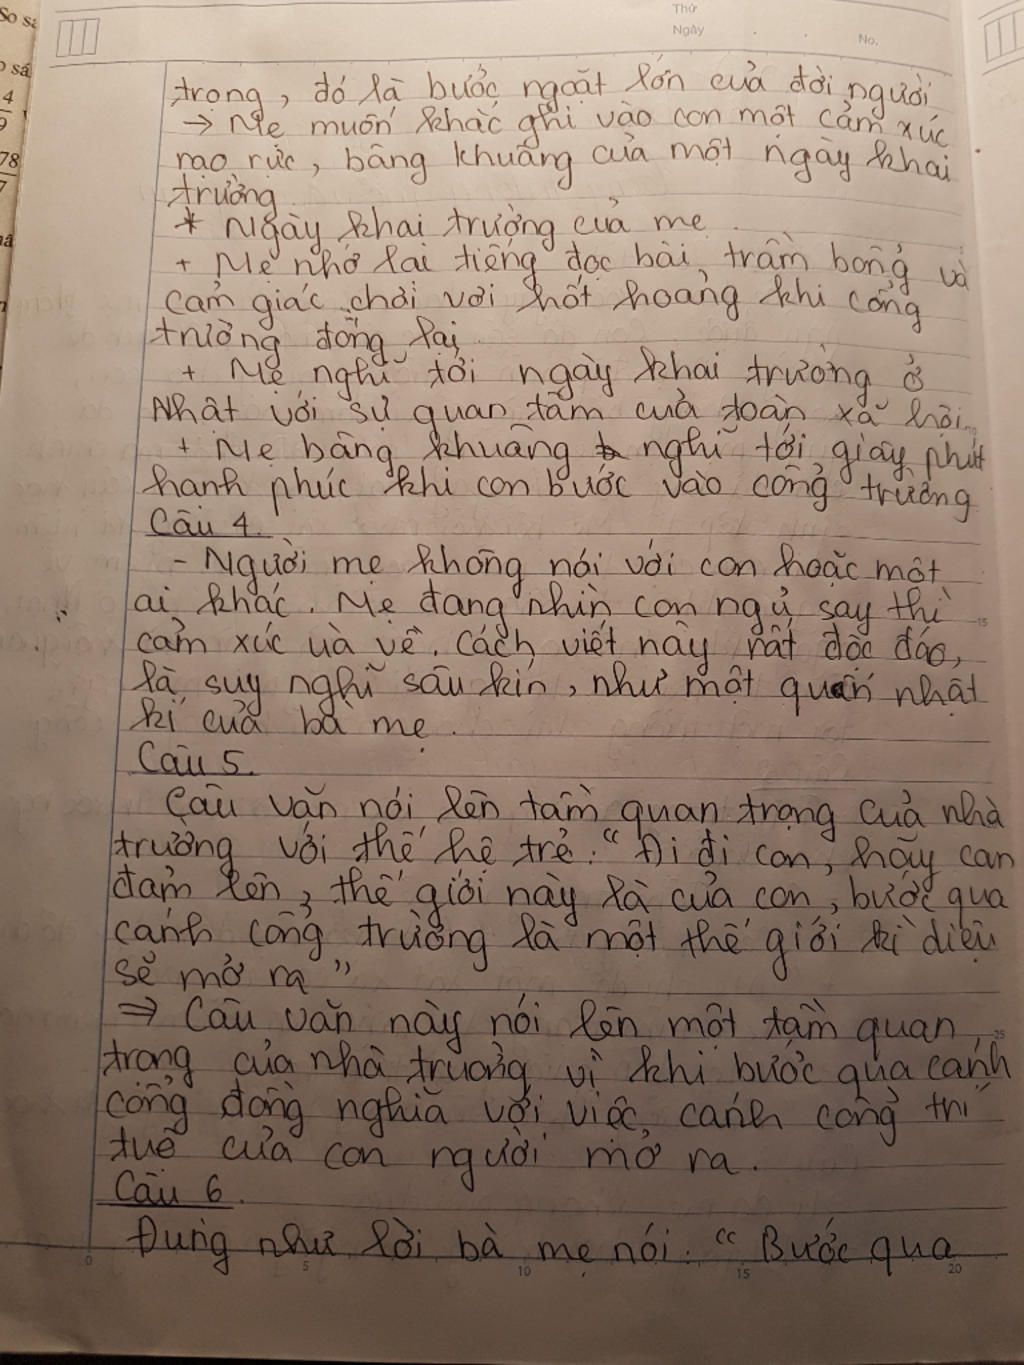 So sá
sá
4
9
78
7
Thứ
Ngày
No.
trọng, đó là bước ngoặt lớn của đời người
→ Mẹ muốn khắc ghi vào con một cảm xúc
rạo rực, bâng khuâng của một ngày khai
trường
* Ngày khai trường của mẹ.
+ Mẹ nhớ lại tiếng đọc bài, trầm bổng và
cảm giác chơi vơi hốt hoảng khi cổng
trường đóng lại.
+ Mẹ nghĩ tới ngày khai trường ở
Nhật với sự quan tâm của toàn xã hội
+ Mẹ bâng khuâng nghĩ tới giây phút
hạnh phúc khi con bước vào cổng trường
Câu 4.
- Người mẹ không nói với con hoặc một
ai khác. Mẹ đang nhìn con ngủ say thì
cảm xúc ùa về. Cách viết này rất độc đáo,
là suy nghĩ sâu kín, như một quấn nhật
kí của bà mẹ.
Câu 5.
Câu văn nói lên tầm quan trọng của nhà
trường với thế hệ trẻ. "Đi đi con, hãy can
đảm lên, thế giới này là của con, bước qua
cánh cổng trường là một thế giới kì diệu
sẽ mở ra"
⇒ Câu văn này nói lên một tầm quan
trọng của nhà trường vì khi bước qua cánh
cổng đồng nghĩa với việc, cánh cổng trí
tuệ của con người mở ra.
Câu 6.
Đúng như lời bà mẹ nói. "Bước qua
15
25
0
5
10
15
20